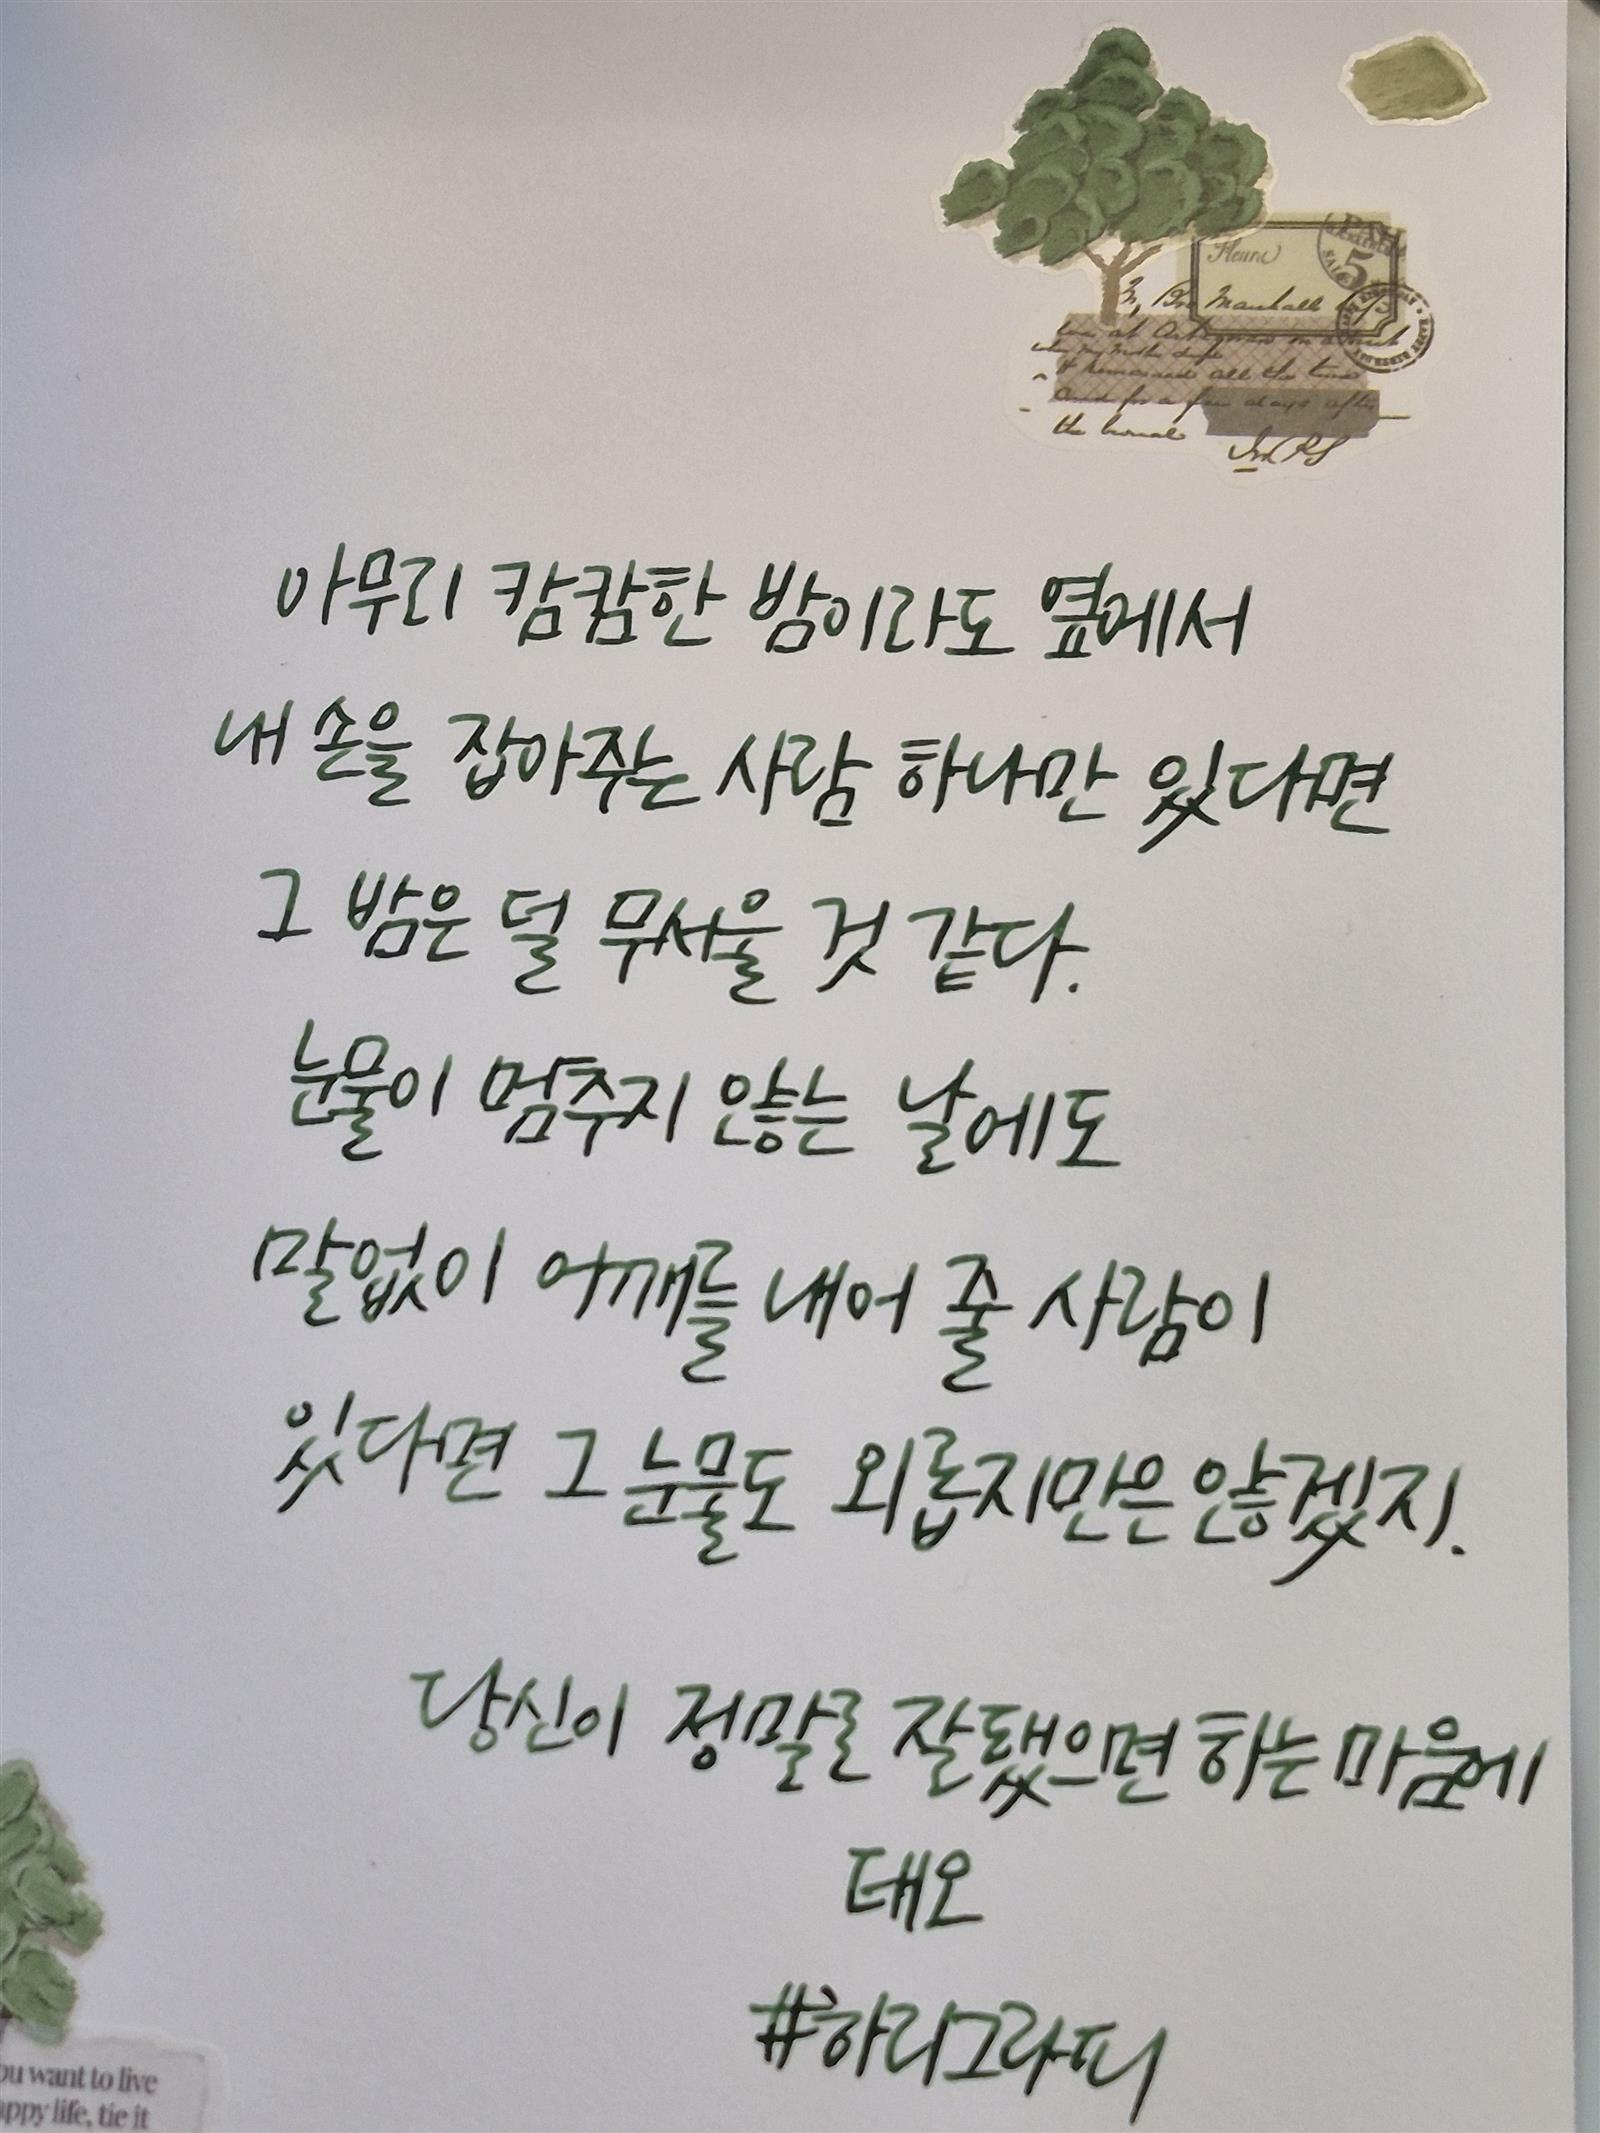 Fleurs
아무리 캄캄한 밤이라도 옆에서
내 손을 잡아주는 사람 하나만 있다면
그 밤은 덜 무서울 것 같다.
눈물이 멈추지 않는 날에도
말없이 어깨를 내어 줄 사람이
있다면 그 눈물도 외롭지만은 않겠지.
당신이 정말로 잘됐으면 하는 마음에
태오
#하리그라피
ou want to live
appy life, tie it